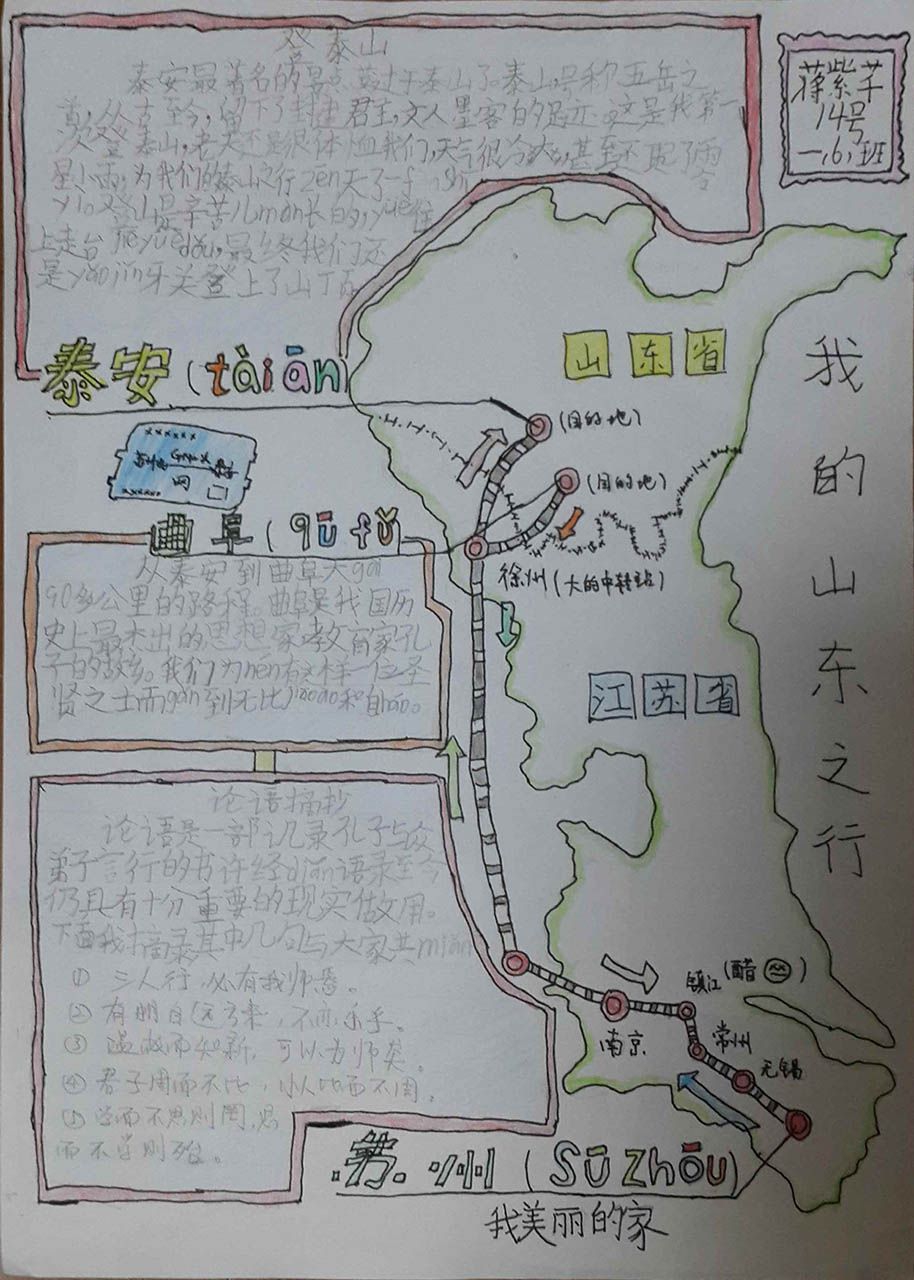 登泰山
泰安最著名的景点莫过于泰山了。泰山号称五岳之
首,从古至今,留下了封建君主,文人墨客的足迹。这是我第一
次登泰山,老天还是很体恤我们,天气很冷
星小雨,为我们的泰山之行zen天了一f
登山是辛苦儿màn长的,yuè往
上走台jiē yuè dǒu,最终我们还
是yǎo jǐn牙关登上了山丁
蒋紫芊
14号
一,6,班
泰安(tài ān)
山东省
我的山东之行
(目的地)
(目的地)
曲阜(qū fǔ)
徐州(大的中转站)
从泰安到曲阜大gai
90多公里的路程。曲阜是我国历
史上最杰出的思想家教育家孔
子的故乡。我们为nén有这样一位圣
贤之士而gǎn到无比jiāo ào和自háo。
江苏省
论语摘抄
论语是一部记录孔子与众
弟子言行的书许经diǎn语录至今
仍具有十分重要的现实做用。
下面我摘录其中几句与大家共miǎn
① 三人行,必有我师焉。
② 有朋自远方来,不亦乐乎。
③ 温故而知新,可以为师矣。
④ 君子周而不比,小人比而不周。
⑤ 学而不思则罔,思
而不学则殆。
镇江(醋)
南京
常州
无锡
苏州(Sū Zhōu)
我美丽的家